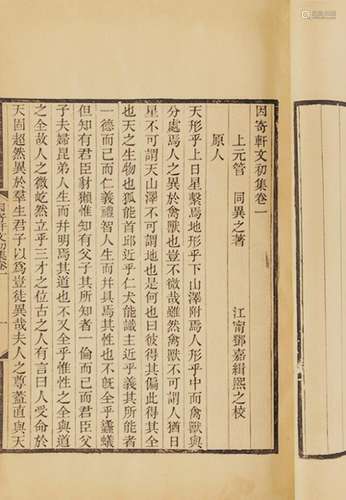 因寄軒文初集卷一
上元管 同異之著 江甯鄧嘉緝熙之校
原人
天形乎上日星繫焉地形乎下山澤附焉人形乎中而禽獸與
分處焉人之異於禽獸也豈不微哉雖然禽獸不可謂人猶日
星不可謂天山澤不可謂地也是何也曰彼得其偏此得其
也天之生物也狐能首邱近乎仁犬能識主近乎義其所能者
一德而已而仁義禮智人生而其性也不旣全乎蟻
但知有君臣豺獺惟知有父子其所知者一倫而已而君臣父
子夫婦昆弟人生而并明焉其道也不又全乎惟性之全與道
之全故人之微屹然立乎三才之位古之人有言曰人受命於
天固超然異於羣生君子以爲豈徒異哉夫人之尊蓋直與天
因寄軒文初集卷一 一